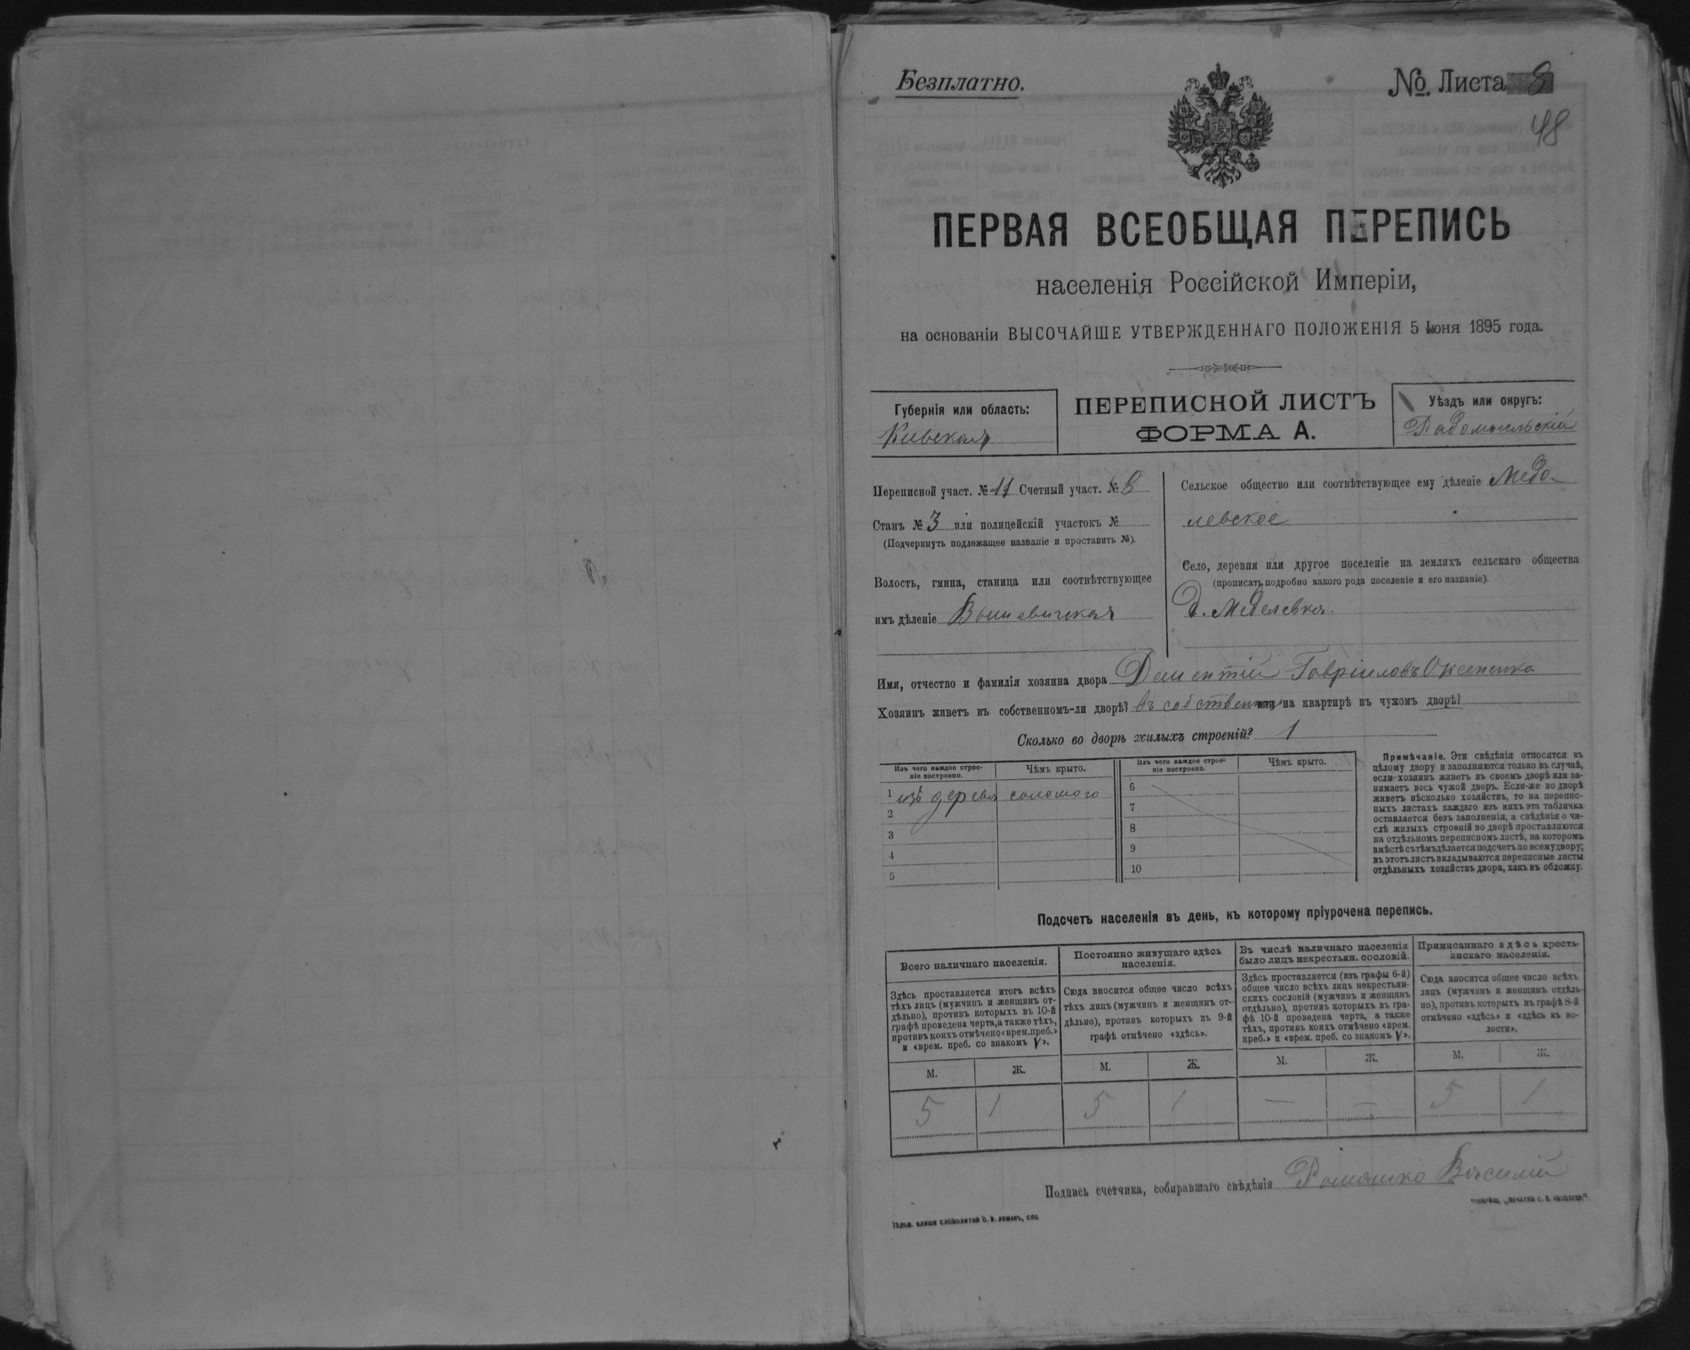 Безплатно.
№ Листа 8
48
ПЕРВАЯ ВСЕОБЩАЯ ПЕРЕПИСЬ
населенія Россійской Имперіи,
на основаніи ВЫСОЧАЙШЕ УТВЕРЖДЕННАГО ПОЛОЖЕНІЯ 5 Іюня 1895 года.
Губернія или область:
Кіевская
ПЕРЕПИСНОЙ ЛИСТЪ
ФОРМА А.
Уѣздъ или округъ:
Радомысльскій
Переписной участ. № 11 Счетный участ. № 8
Станъ № 3 или полицейскій участокъ №
(Подчеркнуть подлежащее названіе и проставить №).
Волость, гмина, станица или соотвѣтствующее
имъ дѣленіе Вышевичская
Сельское общество или соотвѣтствующее ему дѣленіе Медо-
левское
Село, деревня или другое поселеніе на земляхъ сельскаго общества
(прописать подробно какого рода поселеніе и его названіе).
Д. Меделевка.
Имя, отчество и фамилія хозяина двора Дементій Гавріиловъ Оксененко
Хозяинъ живетъ въ собственномъ-ли дворѣ? въ собственном или на квартирѣ въ чужомъ дворѣ?
Сколько во дворѣ жилыхъ строеній? 1
Изъ чего каждое строе-
ніе построено.
Чѣмъ крыто.
1 изъ дерева соломою
2
3
4
5
Изъ чего каждое строе-
ніе построено.
Чѣмъ крыто.
6
7
8
9
10
Примѣчаніе. Эти свѣдѣнія относятся къ
цѣлому двору и заполняются только въ случаѣ,
если хозяинъ живетъ въ своемъ дворѣ или за-
нимаетъ весь чужой дворъ. Если-же во дворѣ
живетъ нѣсколько хозяйствъ, то на перепис-
ныхъ листахъ каждаго изъ нихъ эта табличка
оставляется безъ заполненія, а свѣдѣнія о чи-
слѣ жилыхъ строеній во дворѣ проставляются
на отдѣльномъ переписномъ листѣ, на которомъ
вмѣстѣ съ тѣмъ дѣлается подсчетъ по всему двору;
въ этотъ листъ вкладываются переписные листы
отдѣльныхъ хозяйствъ двора, какъ въ обложку.
Подсчетъ населенія въ день, къ которому пріурочена перепись.
Всего наличнаго населенія.
Здѣсь проставляется итогъ всѣхъ
тѣхъ лицъ (мужчинъ и женщинъ от-
дѣльно), противъ которыхъ въ 10-й
графѣ проведена черта, а также тѣхъ,
противъ коихъ отмѣчено «врем. преб.»
и «врем. преб. со знакомъ V».
М. Ж.
5 1
Постоянно живущаго здѣсь
населенія.
Сюда вносится общее число всѣхъ
тѣхъ лицъ (мужчинъ и женщинъ от-
дѣльно), противъ которыхъ въ 9-й
графѣ отмѣчено «здѣсь».
М. Ж.
5 1
Въ числѣ наличнаго населенія
было лицъ некрестьян. сословій.
Здѣсь проставляется (изъ графы 6-й)
общее число всѣхъ лицъ некрестьян-
скихъ сословій (мужчинъ и женщинъ
отдѣльно), противъ которыхъ въ гра-
фѣ 10-й проведена черта, а также
тѣхъ, противъ коихъ отмѣчено «врем.
преб.» и «врем. преб. со знакомъ V».
М. Ж.
— —
Приписаннаго здѣсь кресть-
янскаго населенія.
Сюда вносится общее число всѣхъ
лицъ (мужчинъ и женщинъ отдѣль-
но), противъ которыхъ въ графѣ 8-й
отмѣчено «здѣсь» и «здѣсь въ во-
лости».
М. Ж.
5 1
Подпись счетчика, собиравшаго свѣдѣнія Ромашко Василій